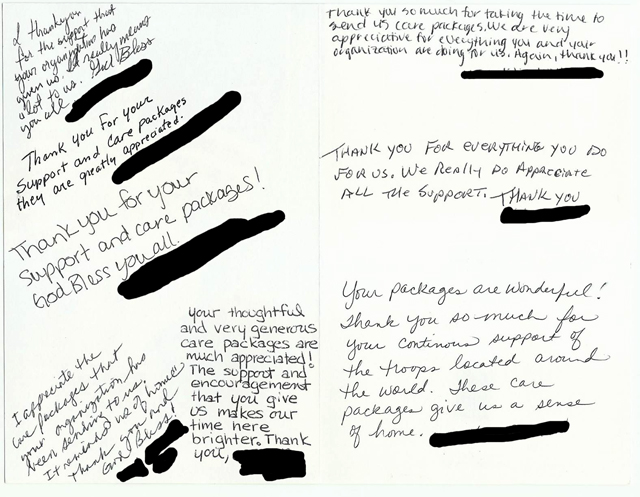 I thank you
for the support that
your organization has
given us. It really means
a lot to us. God Bless
you all.
Thank you For your
Support and care packages
they are greatly appreciated.
Thank you for your
support and care packages!
God Bless you all.
I appreciate the
care packages that
your organization has
been sending to us.
It reminded us of home
Thank you and
God Bless!
your thoughtful
and very generous
care packages are
much appreciated!
The support and
encouragement
that you give
us makes our
time here
brighter. Thank
you,
Thank you so much for taking the time to
send us care packages. We are very
appreciative for everything you and your
organization are doing for us. Again, thank you!!
THANK YOU FOR EVERYTHING YOU DO
FOR US. WE REALLY DO APPRECIATE
ALL THE SUPPORT. THANK YOU
Your packages are wonderful!
Thank you so much for
your continous support of
the troops located around
the world. These care
packages give us a sense
of home.